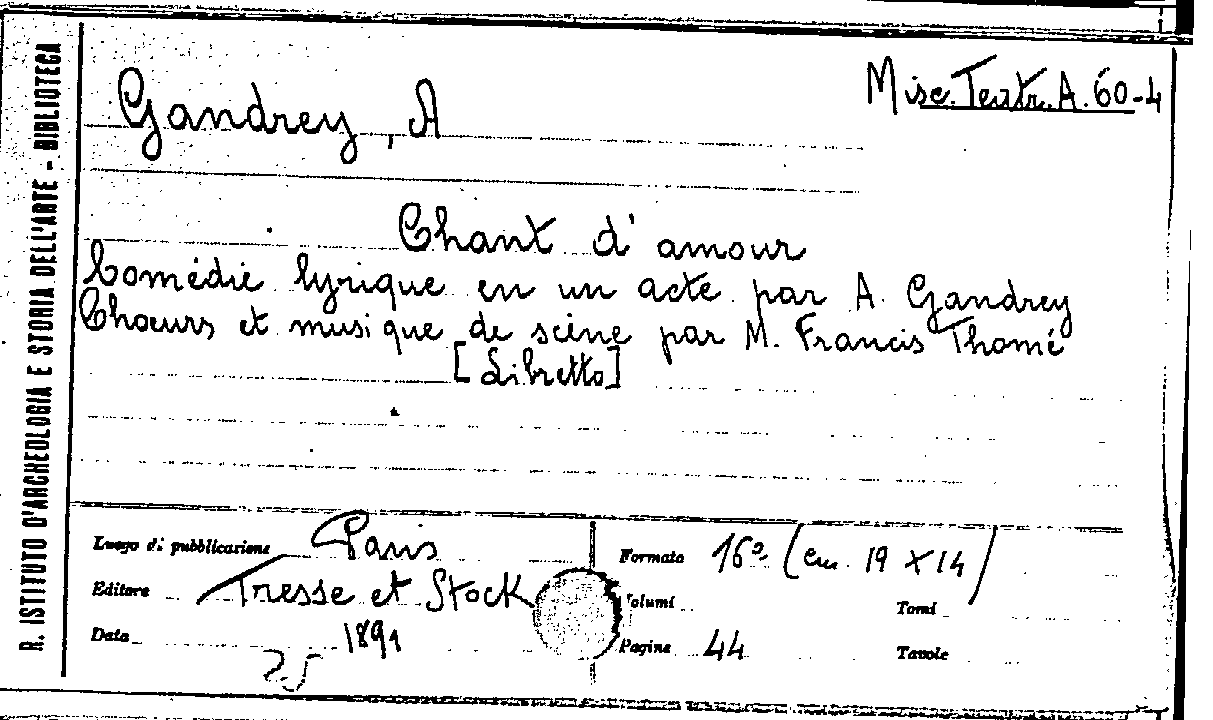 R. ISTITUTO D'ARCHEOLOGIA E STORIA DELL'ARTE - BIBLIOTECA
Misc. Teatr. A. 60-4
Gandrey, A
Chant d'amour
Comédie lyrique en un acte par A. Gandrey
Chœurs et musique de scène par M. Francis Thomé
[Libretto]
Luogo di pubblicazione Paris
Editore Tresse et Stock
Data 1891
25
Formato 16º (cm. 19 X 14)
Volumi Tomi
Pagine 44 Tavole